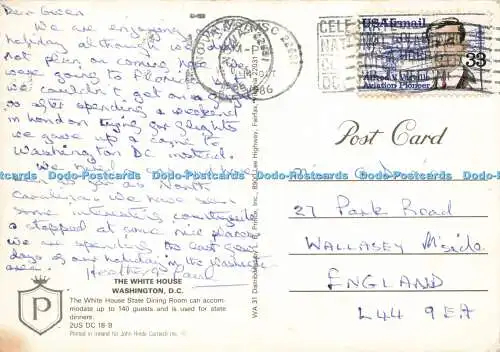 Dear Gwen
We are enjoying our
holiday although we did
not plan on coming here
were going to Florida
we couldn't get on a flight
so after spending a weekend
in London trying for flights
we gave up & came to
Washington DC instead.
We hired a car
as far as North
Carolina. We have seen
some interesting countryside
& stopped at some nice places
we are spending the last few
days of our holiday in the Washington
area.
Heather & Paul
THE WHITE HOUSE
WASHINGTON, D.C.
The White House State Dining Room can accom-
modate up to 140 guests and is used for state
dinners.
2US DC 18-B
Printed in Ireland for John Hinde Curteich Inc. ®
P
WA 31 Distributed by L.B. Prince, Inc., Lee Highway, Fairfax, VA 22031
1986
CELEBRATE
USAirmail
33
Alfred V. Verville
Aviation Pioneer
Post Card
27 Park Road
WALLASEY M'side
ENGLAND
L44 9EA
Dodo-Postcards Dodo-Postcards Dodo-Postcards Dodo-Postcards Dodo-Postcards